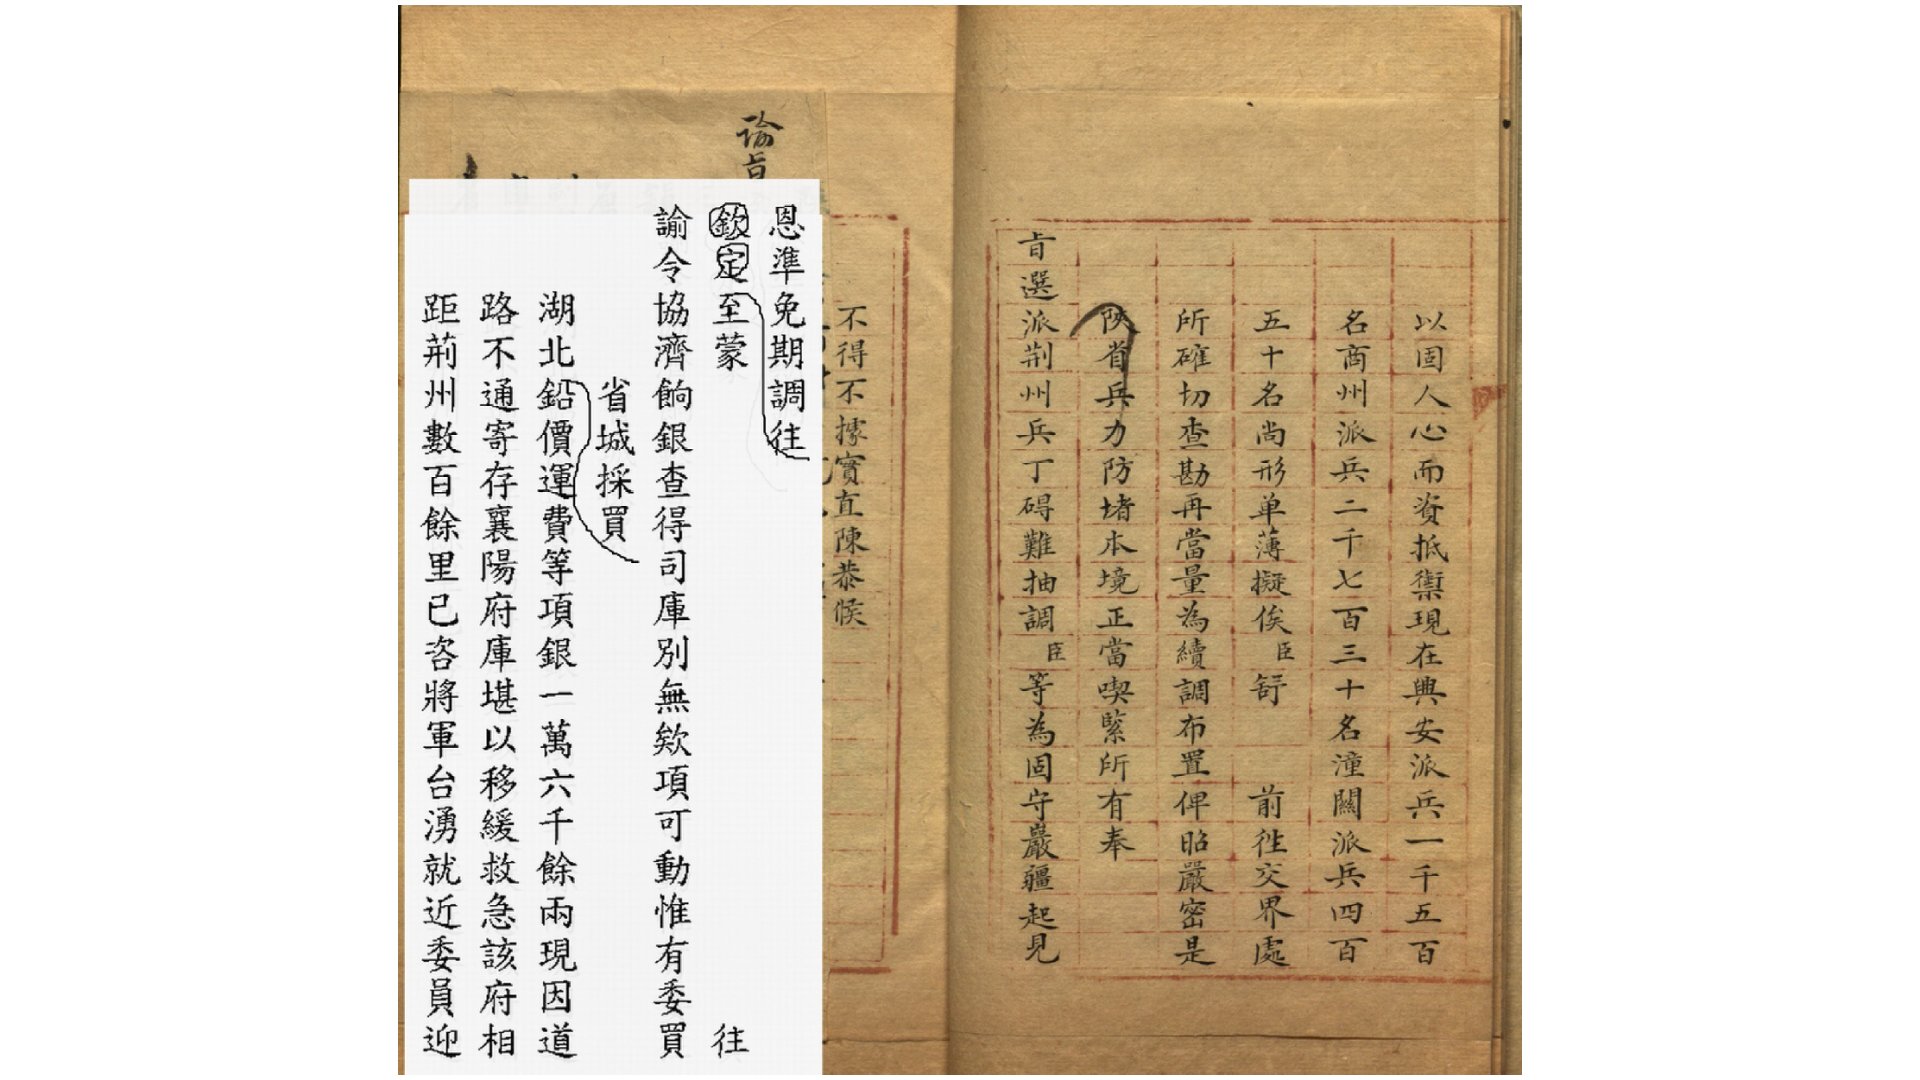 以固人心而資抵禦現在興安派兵一千五百
名商州派兵二千七百三十名潼關派兵四百
五十名尚形单薄擬俟臣舒 前徃交界處
所確切查勘再當量為續調布置俾昭嚴密是
陝省兵力防堵本境正當喫緊所有奉
旨選派荆州兵丁碍難抽調臣等為固守嚴疆起見
不得不據實直陳恭候
諭旨
恩準免期調往
欽定至蒙 往
諭令協濟餉銀查得司庫別無欵項可動惟有委買
省城採買
湖北鉛價運費等項銀一萬六千餘兩現因道
路不通寄存襄陽府庫堪以移緩救急該府相
距荊州數百餘里已咨將軍台湧就近委員迎